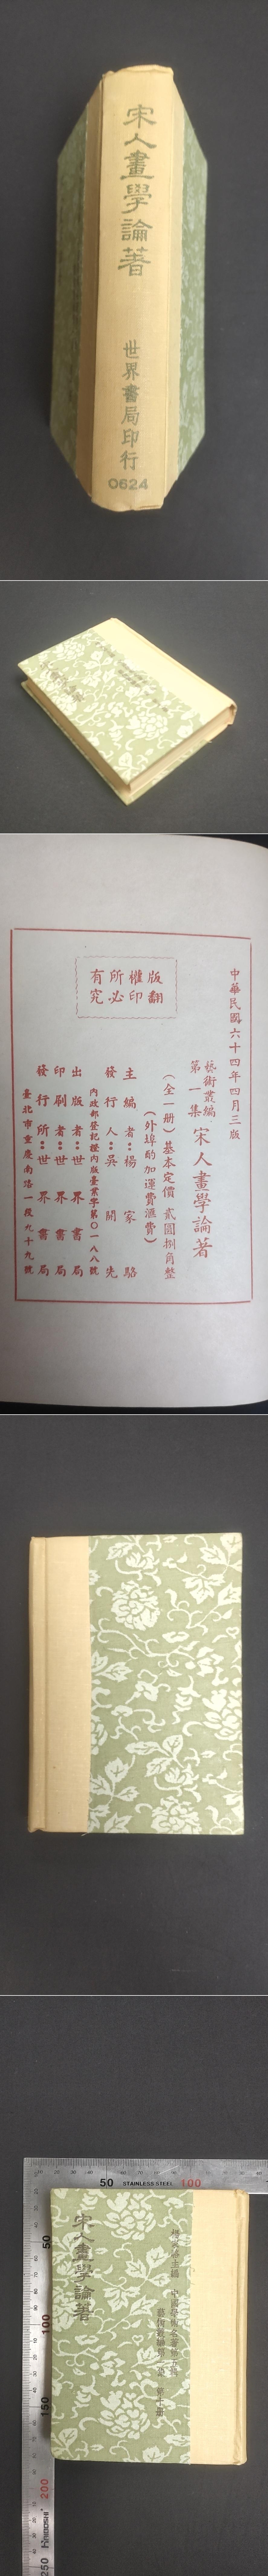 宋人畫學論著
世界書局印行
0624
中華民國六十四年四月三版
藝術叢編
第一集
宋人畫學論著
(全一册)基本定價 貳圓捌角整
(外埠酌加運費滙費)
主編者:楊家駱
發行人:吳開先
內政部登記證內版臺業字第〇一八八號
出版者:世界書局
印刷者:世界書局
發行所:世界書局
臺北市重慶南路一段九十九號
版權所有
翻印必究
50 STAINLESS STEEL 100
50
100
150
200
250
楊家駱主編 中國學術名著第五輯
藝術叢編第一集 第十册
宋人畫學論著